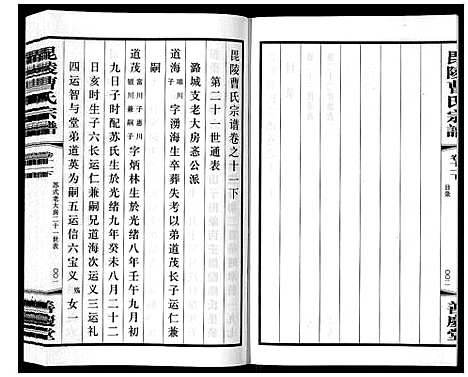 毘陵曹氏宗譜
卷十二下
目录
〇〇二
善慶堂
毘陵曹氏宗谱卷之十二下
第二十一世通表
潞城支老大房悫公派
道海 顺川子 字湧海生卒葬失考以弟道茂长子运仁兼
嗣
道茂 富川子惠川 顺川兼嗣子 字炳林生於光绪七年壬午九月初
九日子时配苏氏生於光绪九年癸未八月二十二
日亥时生子六长运仁兼嗣兄道海次运义三运礼
四运智与堂弟道英为嗣五运信六宝义 殇 女一
毘陵曹氏宗譜
卷十二下
苏式老大房二十一世表
〇〇二
善慶堂